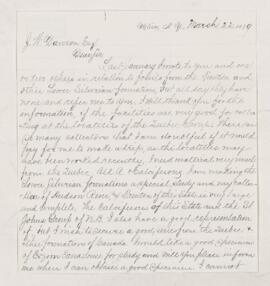 March 22, 1879
J. W. Dawson Esq
Dear Sir
I wrote to you and
two others in relation to fossils from the and
other Lower Silurian formations but all say they have
none and refer me to you. I will thank you for the
information, if the facilities are very good for
at the localities of the Quebec Group. There
so many collectors that I am doubtful if it would
pay for me to make a trip, as the localities may
have been worked recently. I need material very much
from the Quebec, I am making the
Lower Silurian formations a special study and my collec
tion of Hudson River, & Trenton of this state is very large
and complete, the Calciferous of this State and the St
Johns Group of N.B. I also have a good representation
of, but I mean to secure a good one from the Quebec, &
other formations of Canada. I would like a good specimen
of Eozoon Canadense for study and will you please inform
me where I can obtain a good specimen. I cannot